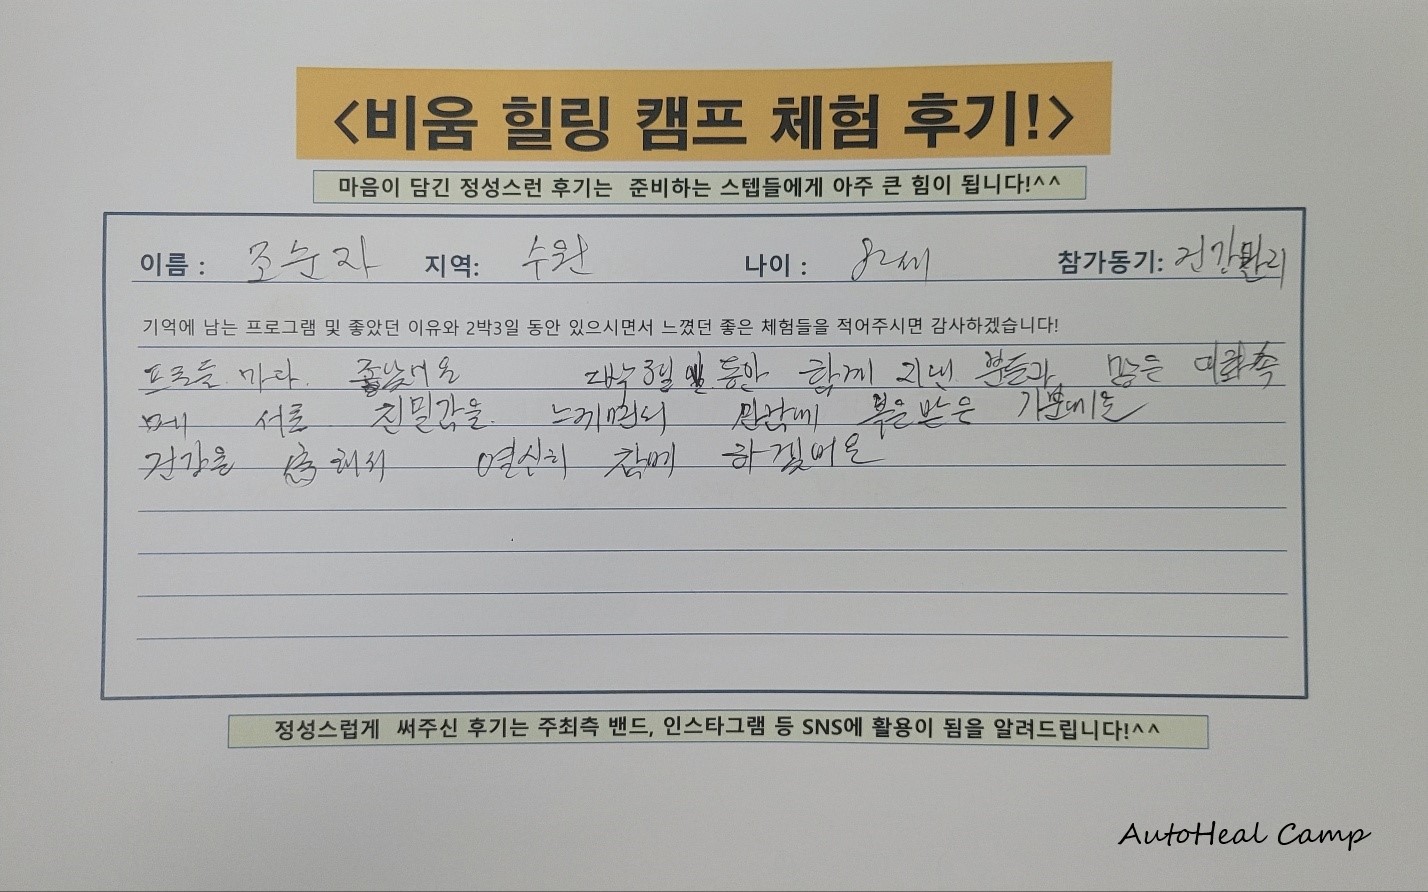 <비움 힐링 캠프 체험 후기!>
마음이 담긴 정성스런 후기는 준비하는 스텝들에게 아주 큰 힘이 됩니다!^^
이름 : 조순자 지역: 수원 나이 : 82세 참가동기: 건강관리
기억에 남는 프로그램 및 좋았던 이유와 2박3일 동안 있으시면서 느꼈던 좋은 체험들을 적어주시면 감사하겠습니다!
마다. 좋았어요 2박3일 동안 함께 지낸 분들과 많은
서로 친밀감을
건강을 열심히 참메 하겠어요
정성스럽게 써주신 후기는 주최측 밴드, 인스타그램 등 SNS에 활용이 됨을 알려드립니다!^^
AutoHeal Camp